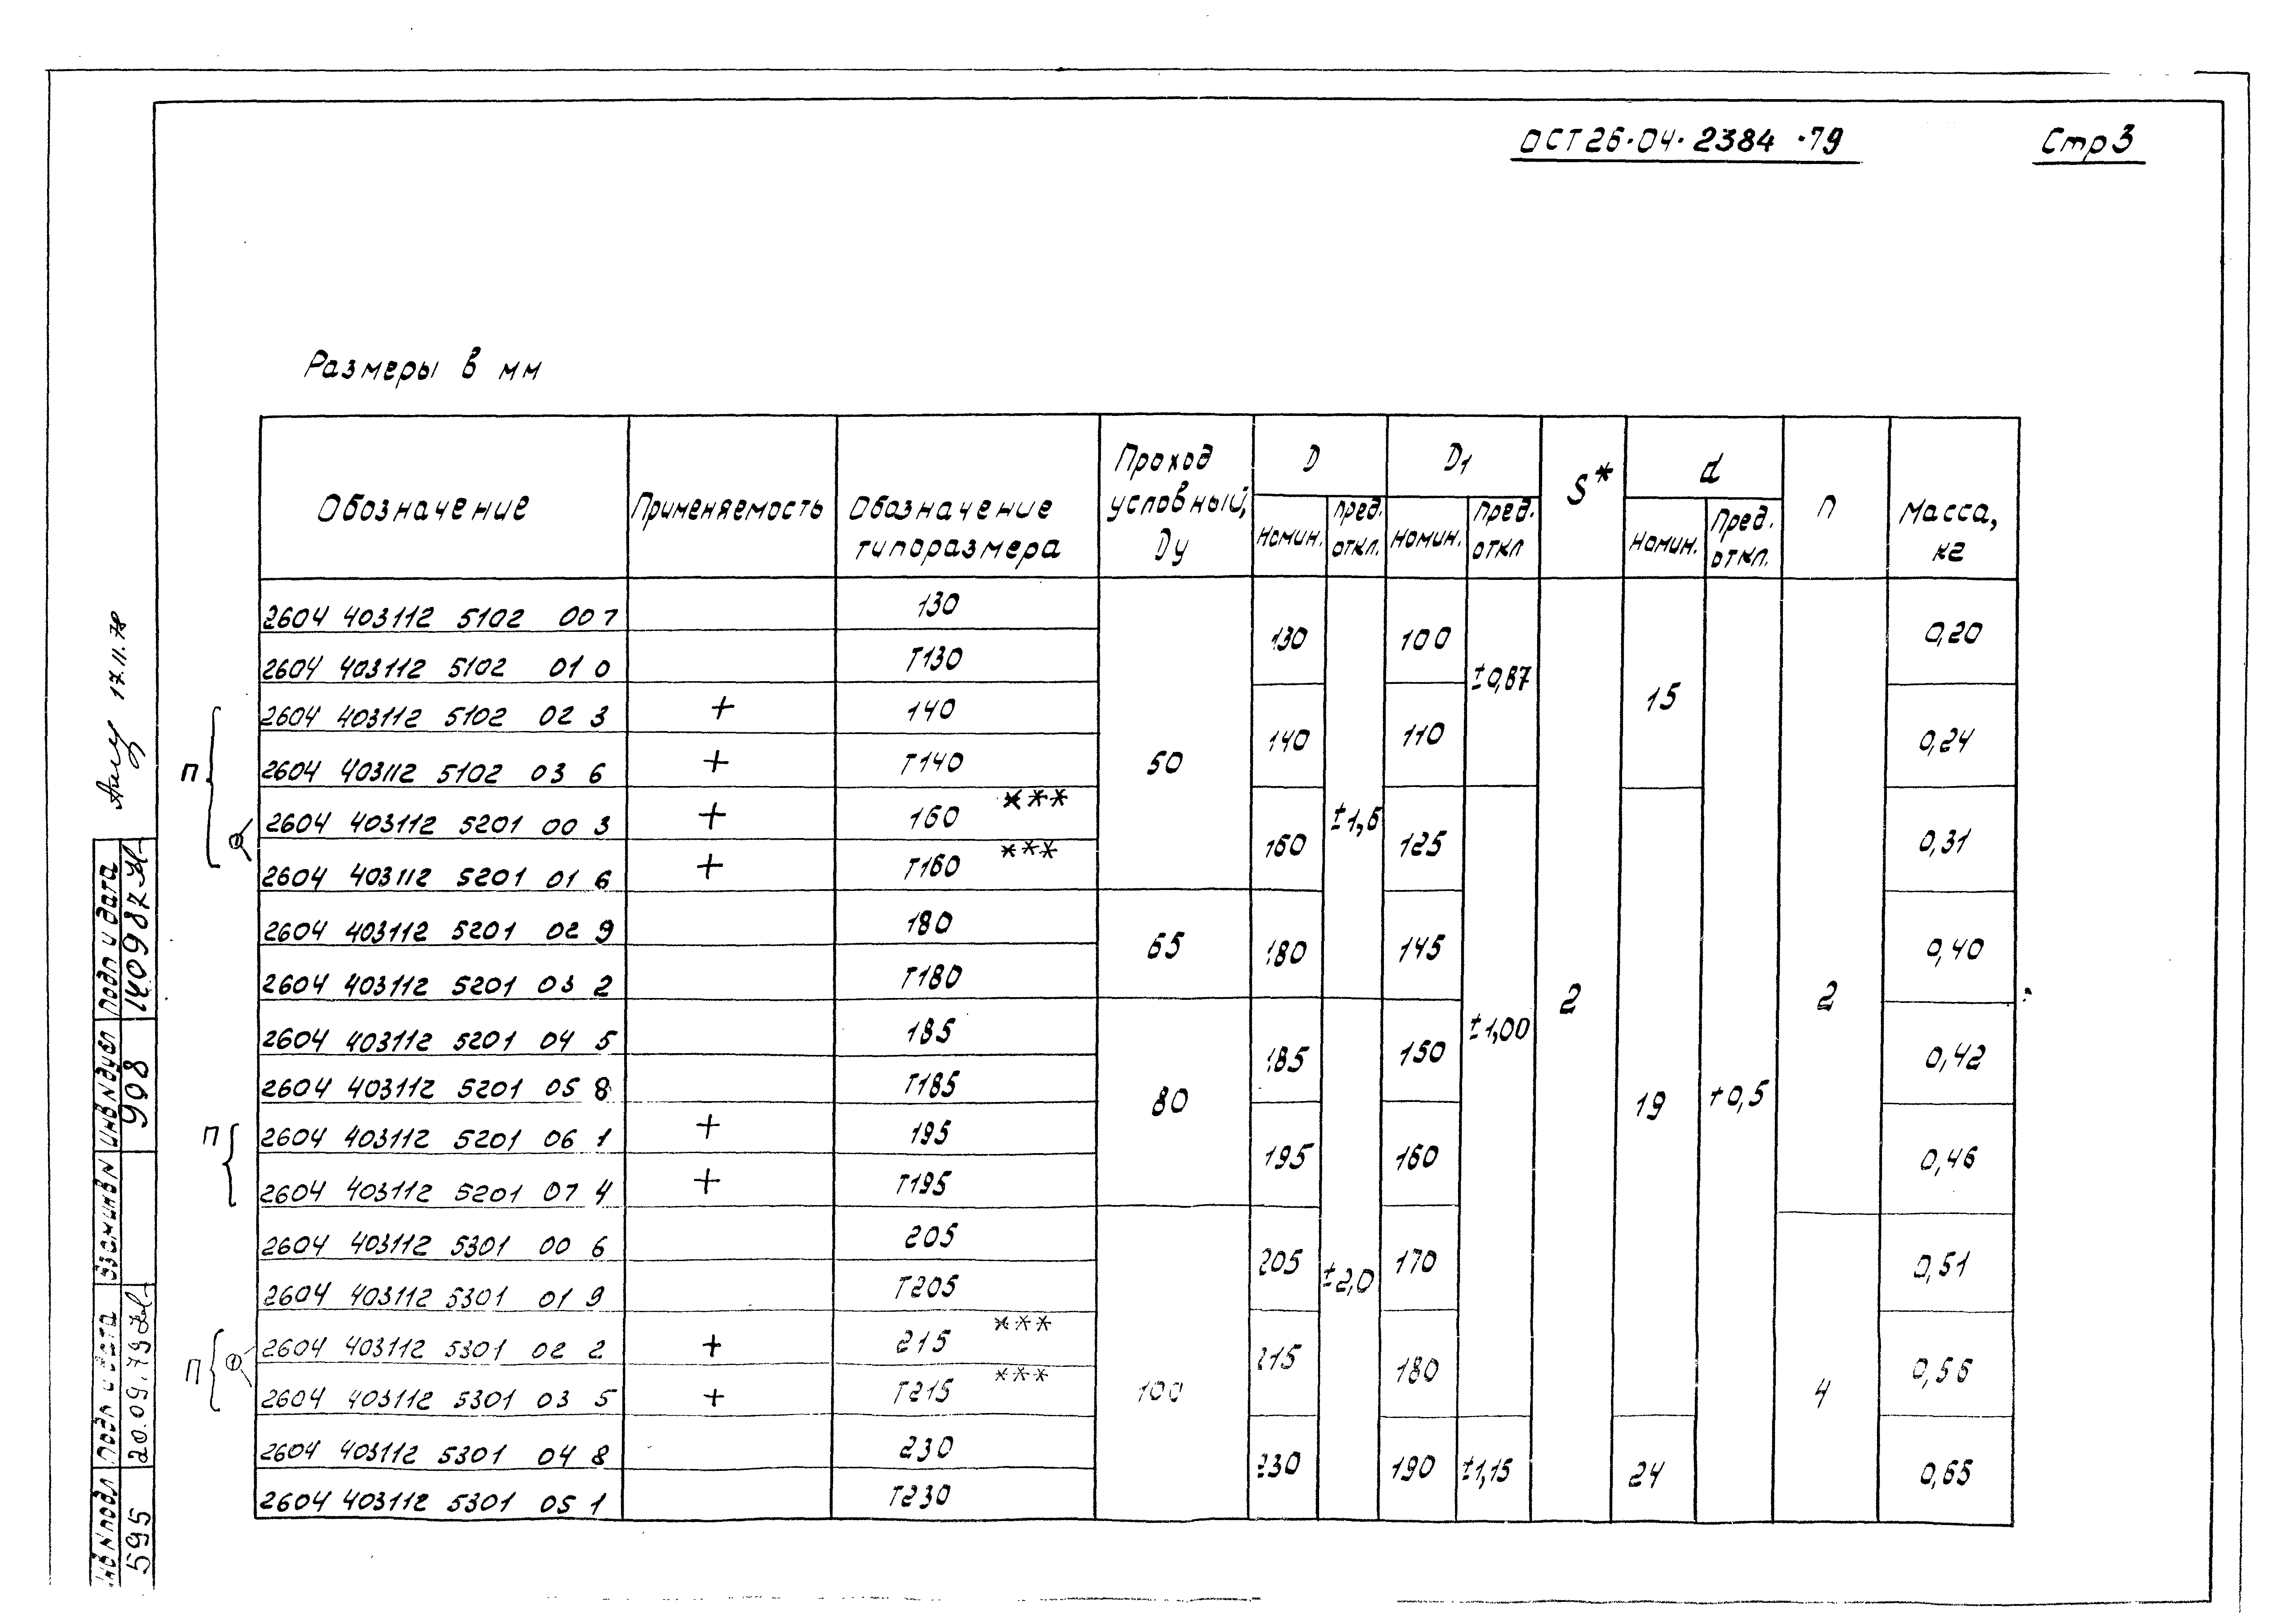 ОСТ 26·04·2384-79 Стр 3
Размеры в мм
Обозначение Применяемость Обозначение типоразмера Проход условный, Dy D D1 S* d n Масса, кг
Номин. Пред. откл. Номин. Пред. откл Номин. Пред. откл.
2604 403112 5102 00 7 130 50 130 ±1,6 100 ±0,87 2 15 +0,5 2 0,20
2604 403112 5102 01 0 Т130
2604 403112 5102 02 3 + 140 140 110 0,24
2604 403112 5102 03 6 + Т140
2604 403112 5201 00 3 + 160 *** 160 125 ±1,00 19 0,31
2604 403112 5201 01 6 + Т160 ***
2604 403112 5201 02 9 180 65 180 145 0,40
2604 403112 5201 03 2 Т180
2604 403112 5201 04 5 185 80 185 ±2,0 150 0,42
2604 403112 5201 05 8 Т185
2604 403112 5201 06 1 + 195 195 160 0,46
2604 403112 5201 07 4 + Т195
2604 403112 5301 00 6 205 100 205 170 4 0,51
2604 403112 5301 01 9 Т205
2604 403112 5301 02 2 + 215 *** 215 180 0,56
2604 403112 5301 03 5 + Т215 ***
2604 403112 5301 04 8 230 230 190 ±1,15 24 0,65
2604 403112 5301 05 1 Т230
П
П
П
17.11.78
Подп и дата
Инв N дубл 998
Взам инв N
Подп и дата 20.09.79
Инв N подл 595